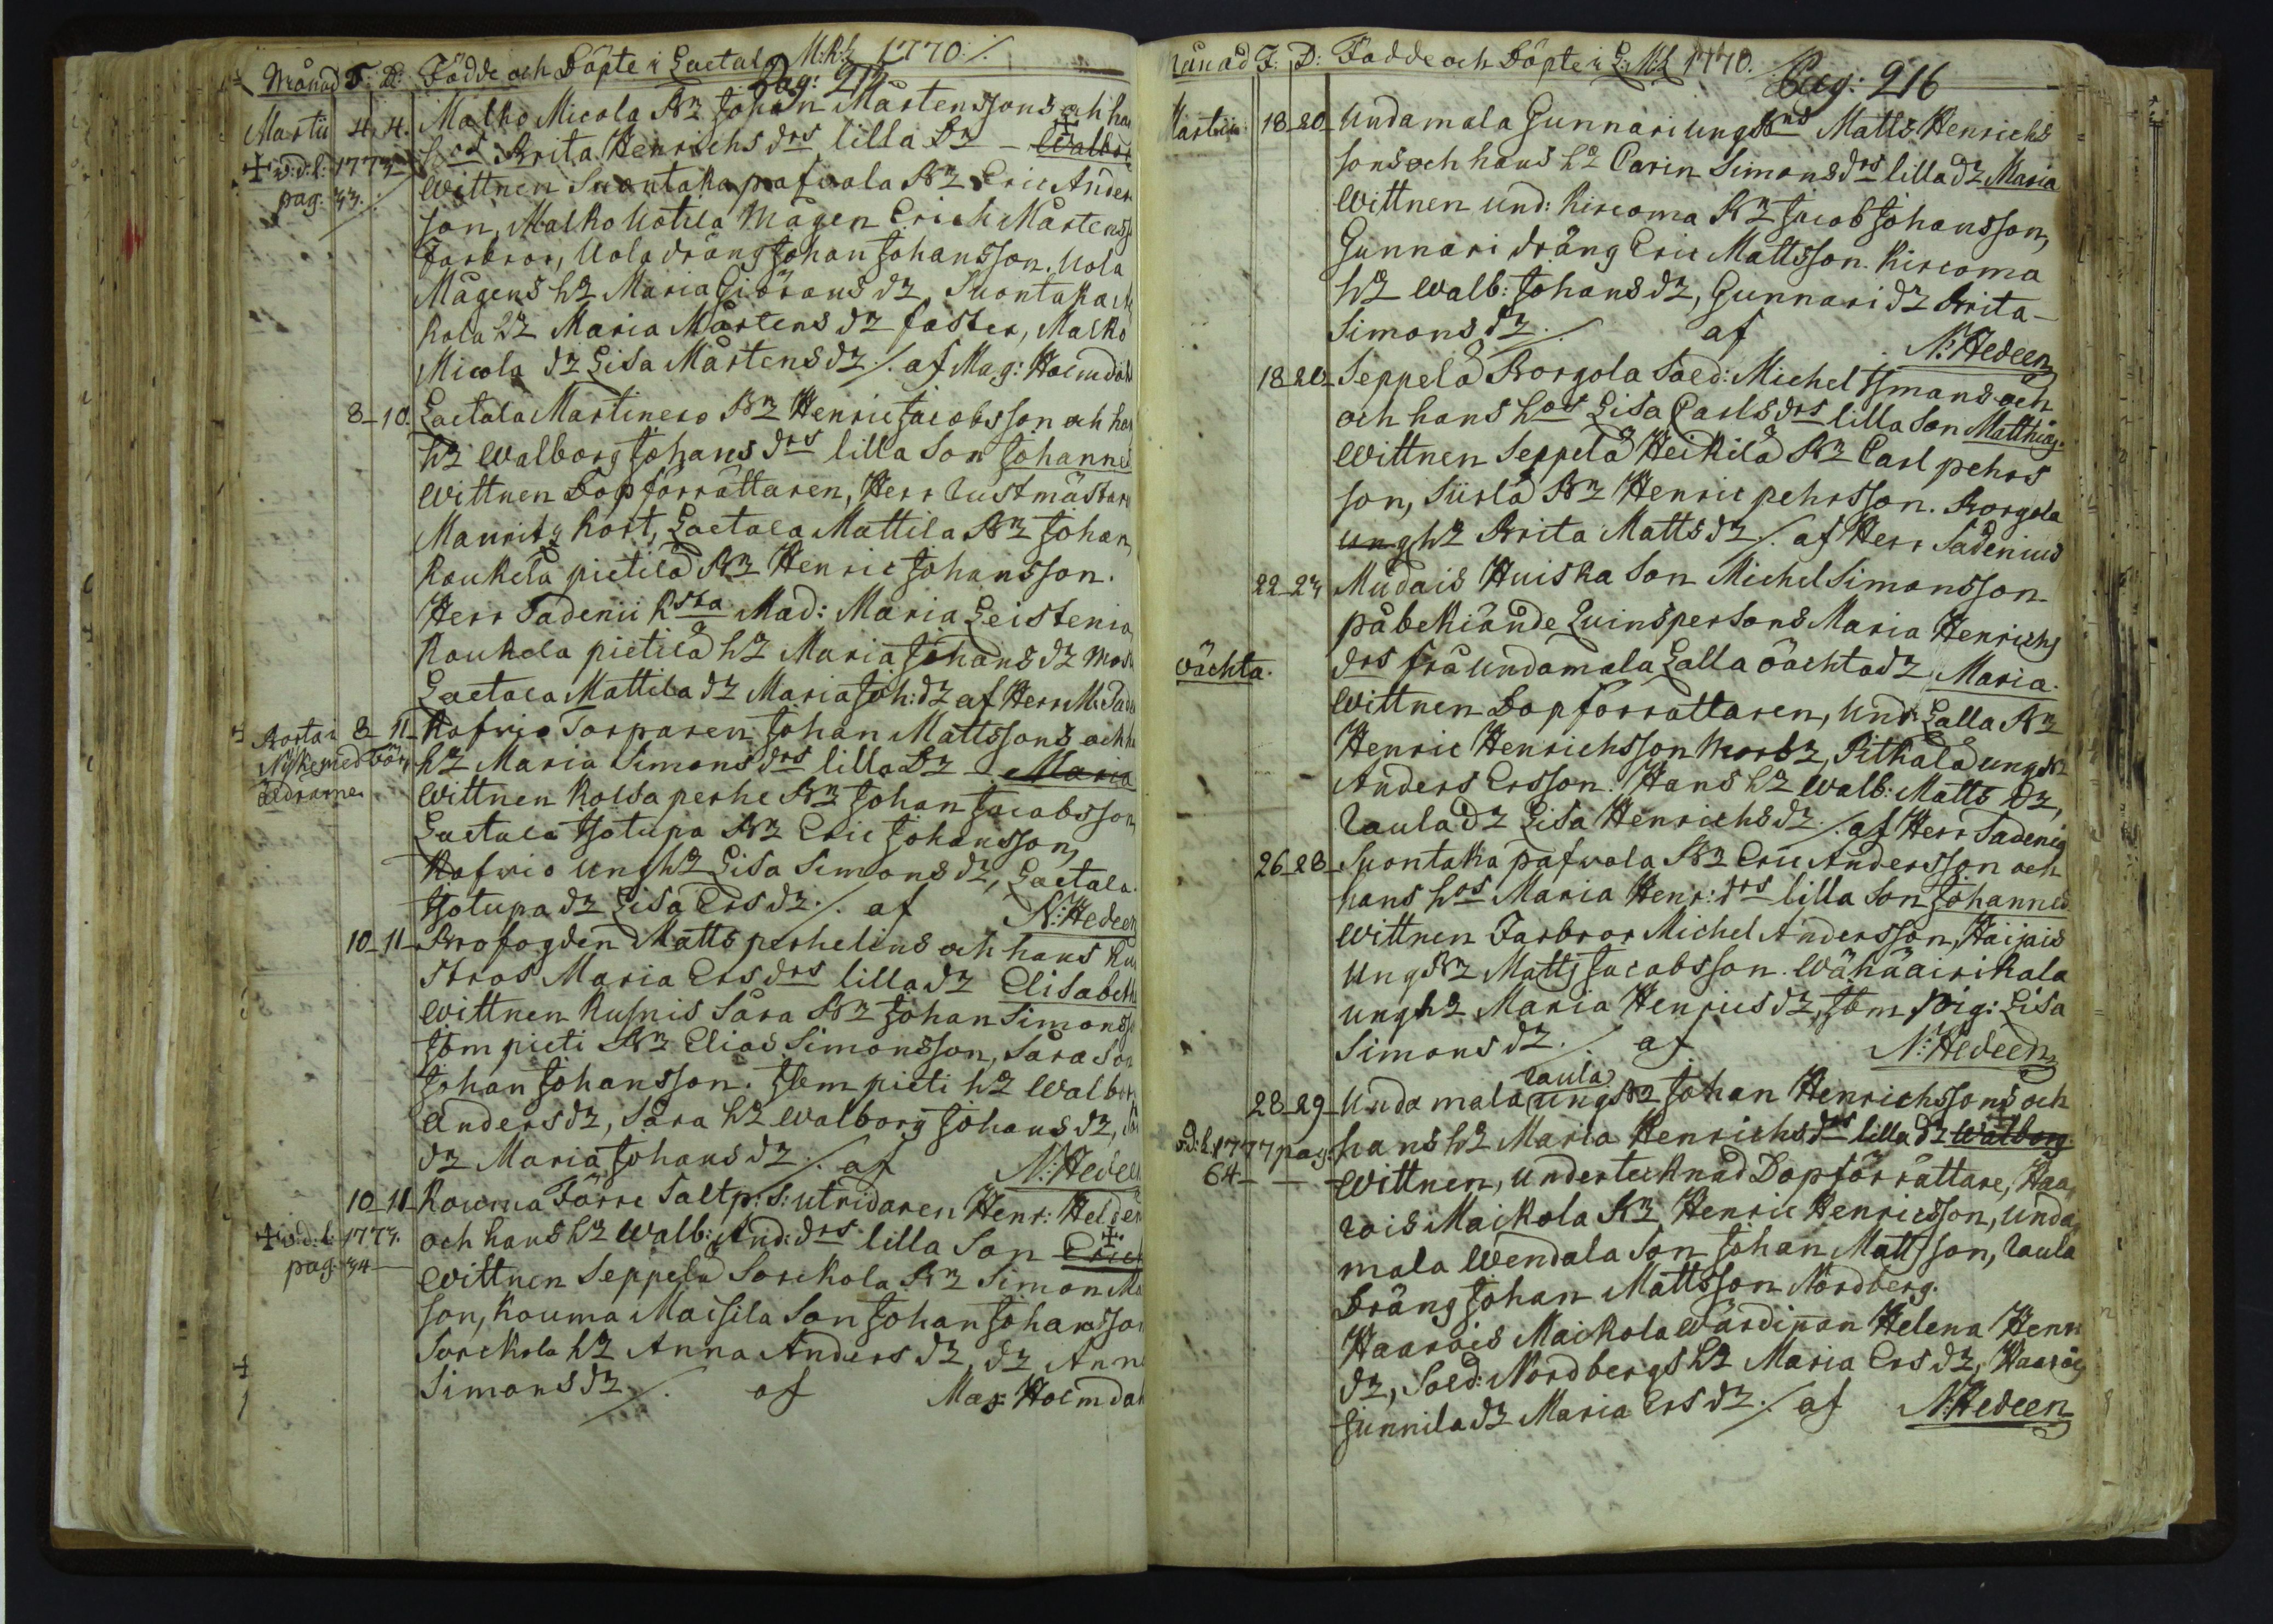 Månad F: D: Födde och Döpte i Laetala M:K:L 1770 ./.
Pag: 215
Martii 4. 4. Malko Micola Br Johan Mårtenssons och ha
hos Brita Henrichs drs lilla Dr - Walbor
✝ v:d:l: 1773
pag: 33.
Wittnen Suontaka pafvola Br Eric Anders
son, Malko Uotila Mågen Erich Mårtenss
Farbror, Uola dräng Johan Johansson. Uola
Mågens hr Maria Giörans dr, Suontaka
kola hr Maria Mårtens dr faster, Malko
Micola dr Lisa Mårtens dr ./. af Mag: Holmdahl
8_10. Laetala Martinero Br Henric Jacobsson och han
hr Walborg Johans drs lilla Son Johannes
Wittnen Dopförrättaren, Herr Rustmästare
Mauritz Kort, Laetala Mattila Br Johan
Koukela pietilä Br Henric Johansson.
Herr Sadenii Ksta Mad: Maria Leistenia
Koukola pietilä hr Maria Johans dr Mos
Laetala Mattila dr Maria Joh: dr af Herr M: Sade
8_11_ Kafvio Torparen Johan Mattssons och ha
Borta i
Nyky med för
äldrarne
hr Maria Simons drs lilla Dr - Maria
Wittnen Kolsa perhe Br Johan Jacobsson,
Laetala Isotupa Br Eric Johansson,
Kafvio Ung hr Lisa Simons dr, Laetala
Isotupa dr Lisa Ers dr ./. af N: Hedeen
10_11_ Brofogden Matts perhelins och hans Hu
stros Maria Ers drs lilla dr Elisabeth
Wittnen Kusnis Sara Br Johan Simonss
Ibm pieti Br Elias Simonsson, Sara Son
Johan Johansson. Ibm pieti hr Walbor
Anders dr, Sara hr Walborg Johans dr,
dr Maria Johans dr ./. af N: Hedeen
10_11_ Kouma Förre Saltp: S: utridaren Henr: Helder
✝ v:d:l: 1773.
pag: 34
och hans hr Walb: And: drs lilla Son Erich
Wittnen Seppelä Sorckola Br Simon Ma
son, Kouma Maisila Son Johan Johansson
Sorckola hr Anna Anders dr, dr Anna
Simons dr ./. af Mag: Holmdah
Månad F: D: Födde och Döpte i L: M:L 1770.
Pag: 216
Martii: 18_20_ Undamala Gunnari Ung Bns Matts Henrichs
sons och hans hr Carin Simons drs lilla dr Maria
Wittnen Und: Kircoma Br Jacob Johansson,
Gunnari dräng Eric Mattsson. Kircoma
hr Walb: Johans dr, Gunnari dr Brita
Simons dr ./. af N: Hedeen
18_20_ Seppelä Borgola Sold: Michel Ismans och
och hans hos Lisa Carls drs lilla Son Matthias.
Wittnen Seppelä Heikilä Br Carl pehrs
son, Siirlä Br Henric pehrsson. Borgola
ung hr Brita Matts dr ./. af Herr Sadenius
22_23_ Mudais Huiska Son Michel Simonsson
påbekiände Quinspersons Maria Henrichs
oächta. drs frå Undamala Lalla oächta dr Maria.
Wittnen Dopförrättaren, Und: Lalla Br
Henric Henrichsson Morbr, Pitkälä ung Br
Anders Ersson. Hans hr Walb: Matts dr,
Raula dr Lisa Henrichs dr ./. af Herr Sadenio
26_28_ Suontaka pafvola Br Eric Andersson och
hans hos Maria Henr: drs lilla Son Johannes
Wittnen Farbror Michel Andersson, Häijais
Ung Br Matts Jacobsson. Wähäairikala
ung hr Maria Henrics dr, Ibm pig: Lisa
Simons dr ./. af N: Hedeen
Raula
28_29_ Undamala ung Br Johan Henrichssons och
v:d:l. 1777 pag: 64_ hans hr Maria Henrichs drs lilla dr Walborg
Wittnen, undertecknad Dopförrättare, Haa
rois Maikola Br Henric Henricsson, Unda
mala Wendala Son Johan Mattsson, Raula
Dräng Johan Mattsson Nordberg.
Haarois Maikola Wärdinan Helena Henr
dr, Sold: Nordbergs hr Maria Ers dr, Haarois
Junnila dr Maria Ers dr ./. af N: Hedeen